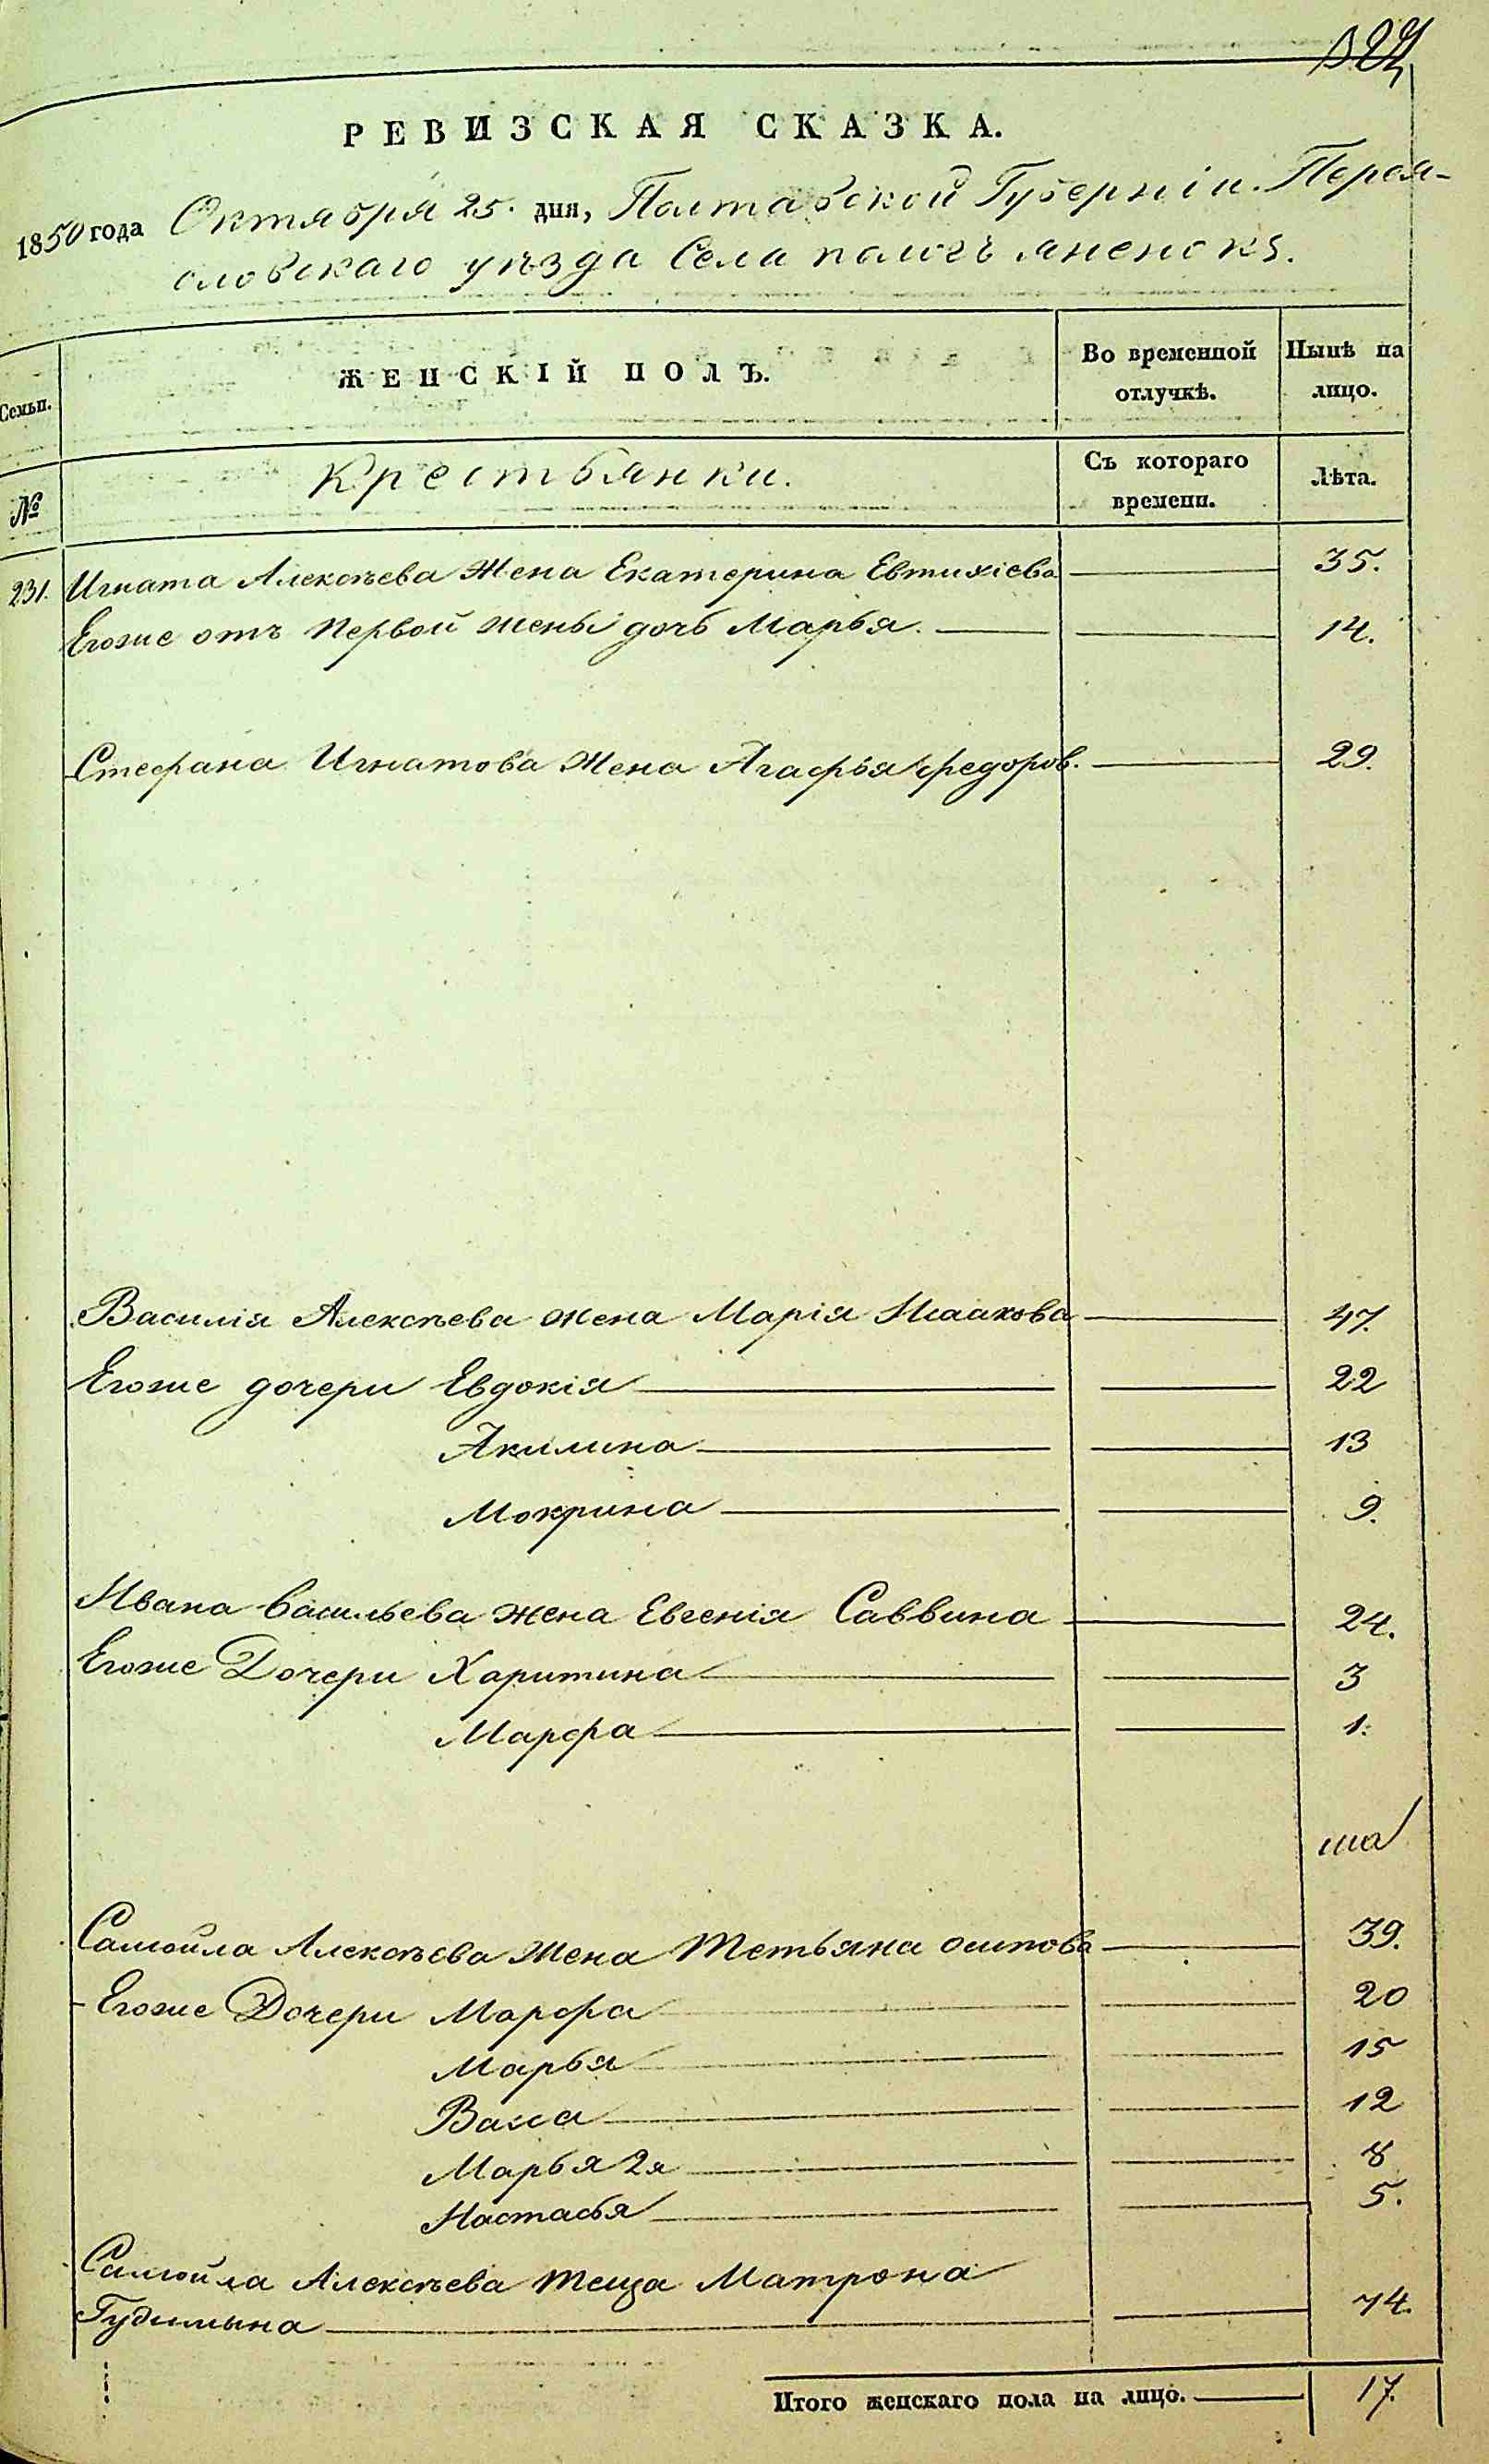 РЕВИЗСКАЯ СКАЗКА.
1850 года Октября 25. дня, Полтавской Губерніи. Перея-
словскаго уѣзда Села
ЖЕНСКІЙ ПОЛЪ.
Во временной отлучкѣ.
Нынѣ на лицо.
Семьи.
Крестьянки.
Съ котораго времени.
Лѣта.
№
231. Игната Алексѣева Жена Екатерина Евтихіева 35.
Егоже отъ первой жены дочь Марья. 14.
Стефана Игнатова Жена Агафья Федоров. 29.
Василія Алексѣева жена Марія Исаакова 47.
Егоже дочери Евдокія 22
Акилина 13
Мокрина 9.
Ивана Васильева жена Евгенія Саввина 24.
Егоже Дочери Харитина 3
Марфа 1.
Самойла Алексѣева Жена Тетьяна Осипова 39.
Егоже Дочери Марфа 20
Марья 15
Васса 12
Марья 2я 8
Настасья 5.
Самойла Алексѣева теща Матрона
Гудимына 74.
Итого женскаго пола на лицо. 17.